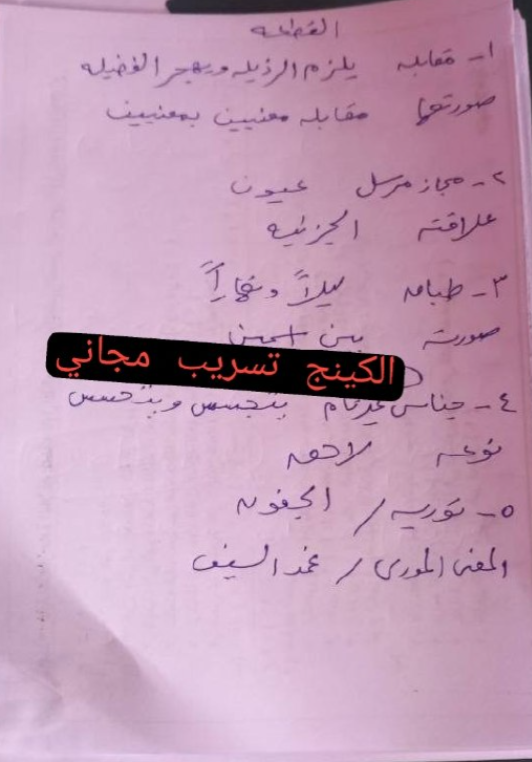 القطعه
١- مقابله يلزم الرذيله ويهجر الفضيله
صورتها مقابله معنيين بمعنيين
٢- مجاز مرسل عيون
علاقته الجزئيه
٣- طباق ليلاً ونهاراً
صورته بين اسمين
الكينج تسريب مجاني
٤- جناس غير تام يتجسس ويتحسس
نوعه لاحق
٥- توريه / الجفون
المعنى المورى / غمد السيف